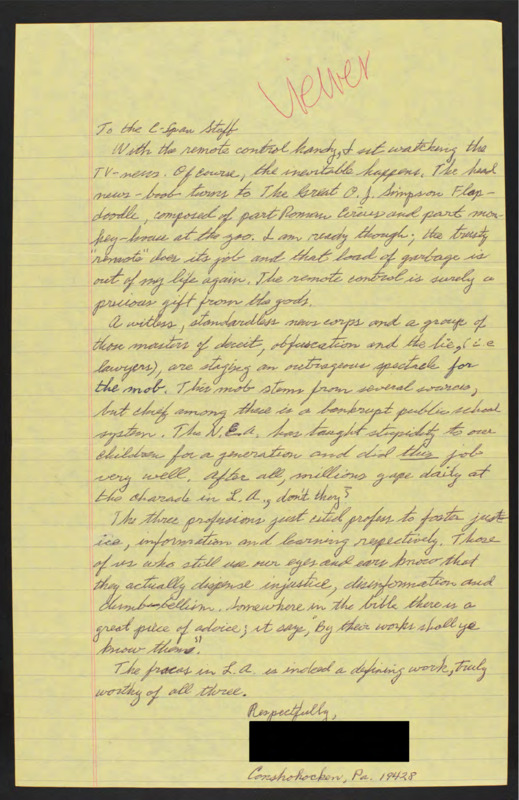 Viewer
To the C-Span Staff
With the remote control handy, I sit watching the
TV-news. Of course, the inevitable happens. The head
news-boob turns to The Great O. J. Simpson Flap-
doodle, composed of part Roman Circus and part mon-
key-house at the zoo. I am ready though; the trusty
"remote" does its job and that load of garbage is
out of my life again. The remote control is surely a
precious gift from the gods.
A witless, standardless news corps and a group of
those masters of deceit, obfuscation and the lie, (i e
lawyers), are staging an outrageous spectacle for
the mob. This mob stems from several sources,
but chief among these is a bankrupt public school
system. The N.E.A. has taught stupidity to our
children for a generation and did this job
very well. After all, millions gape daily at
the charade in L.A., don't they?
The three professions just cited profess to foster just-
ice, information and learning repectively. Those
of us who still use our eyes and ears know that
they actually dispense injustice, disinformation and
dumb-bellism. Somewhere in the bible there is a
great piece of advice; it says, "By their works shall ye
know them".
The fracas in L.A. is indeed a defining work, truly
worthy of all three.
Respectfully,
Conshohocken, Pa. 19428